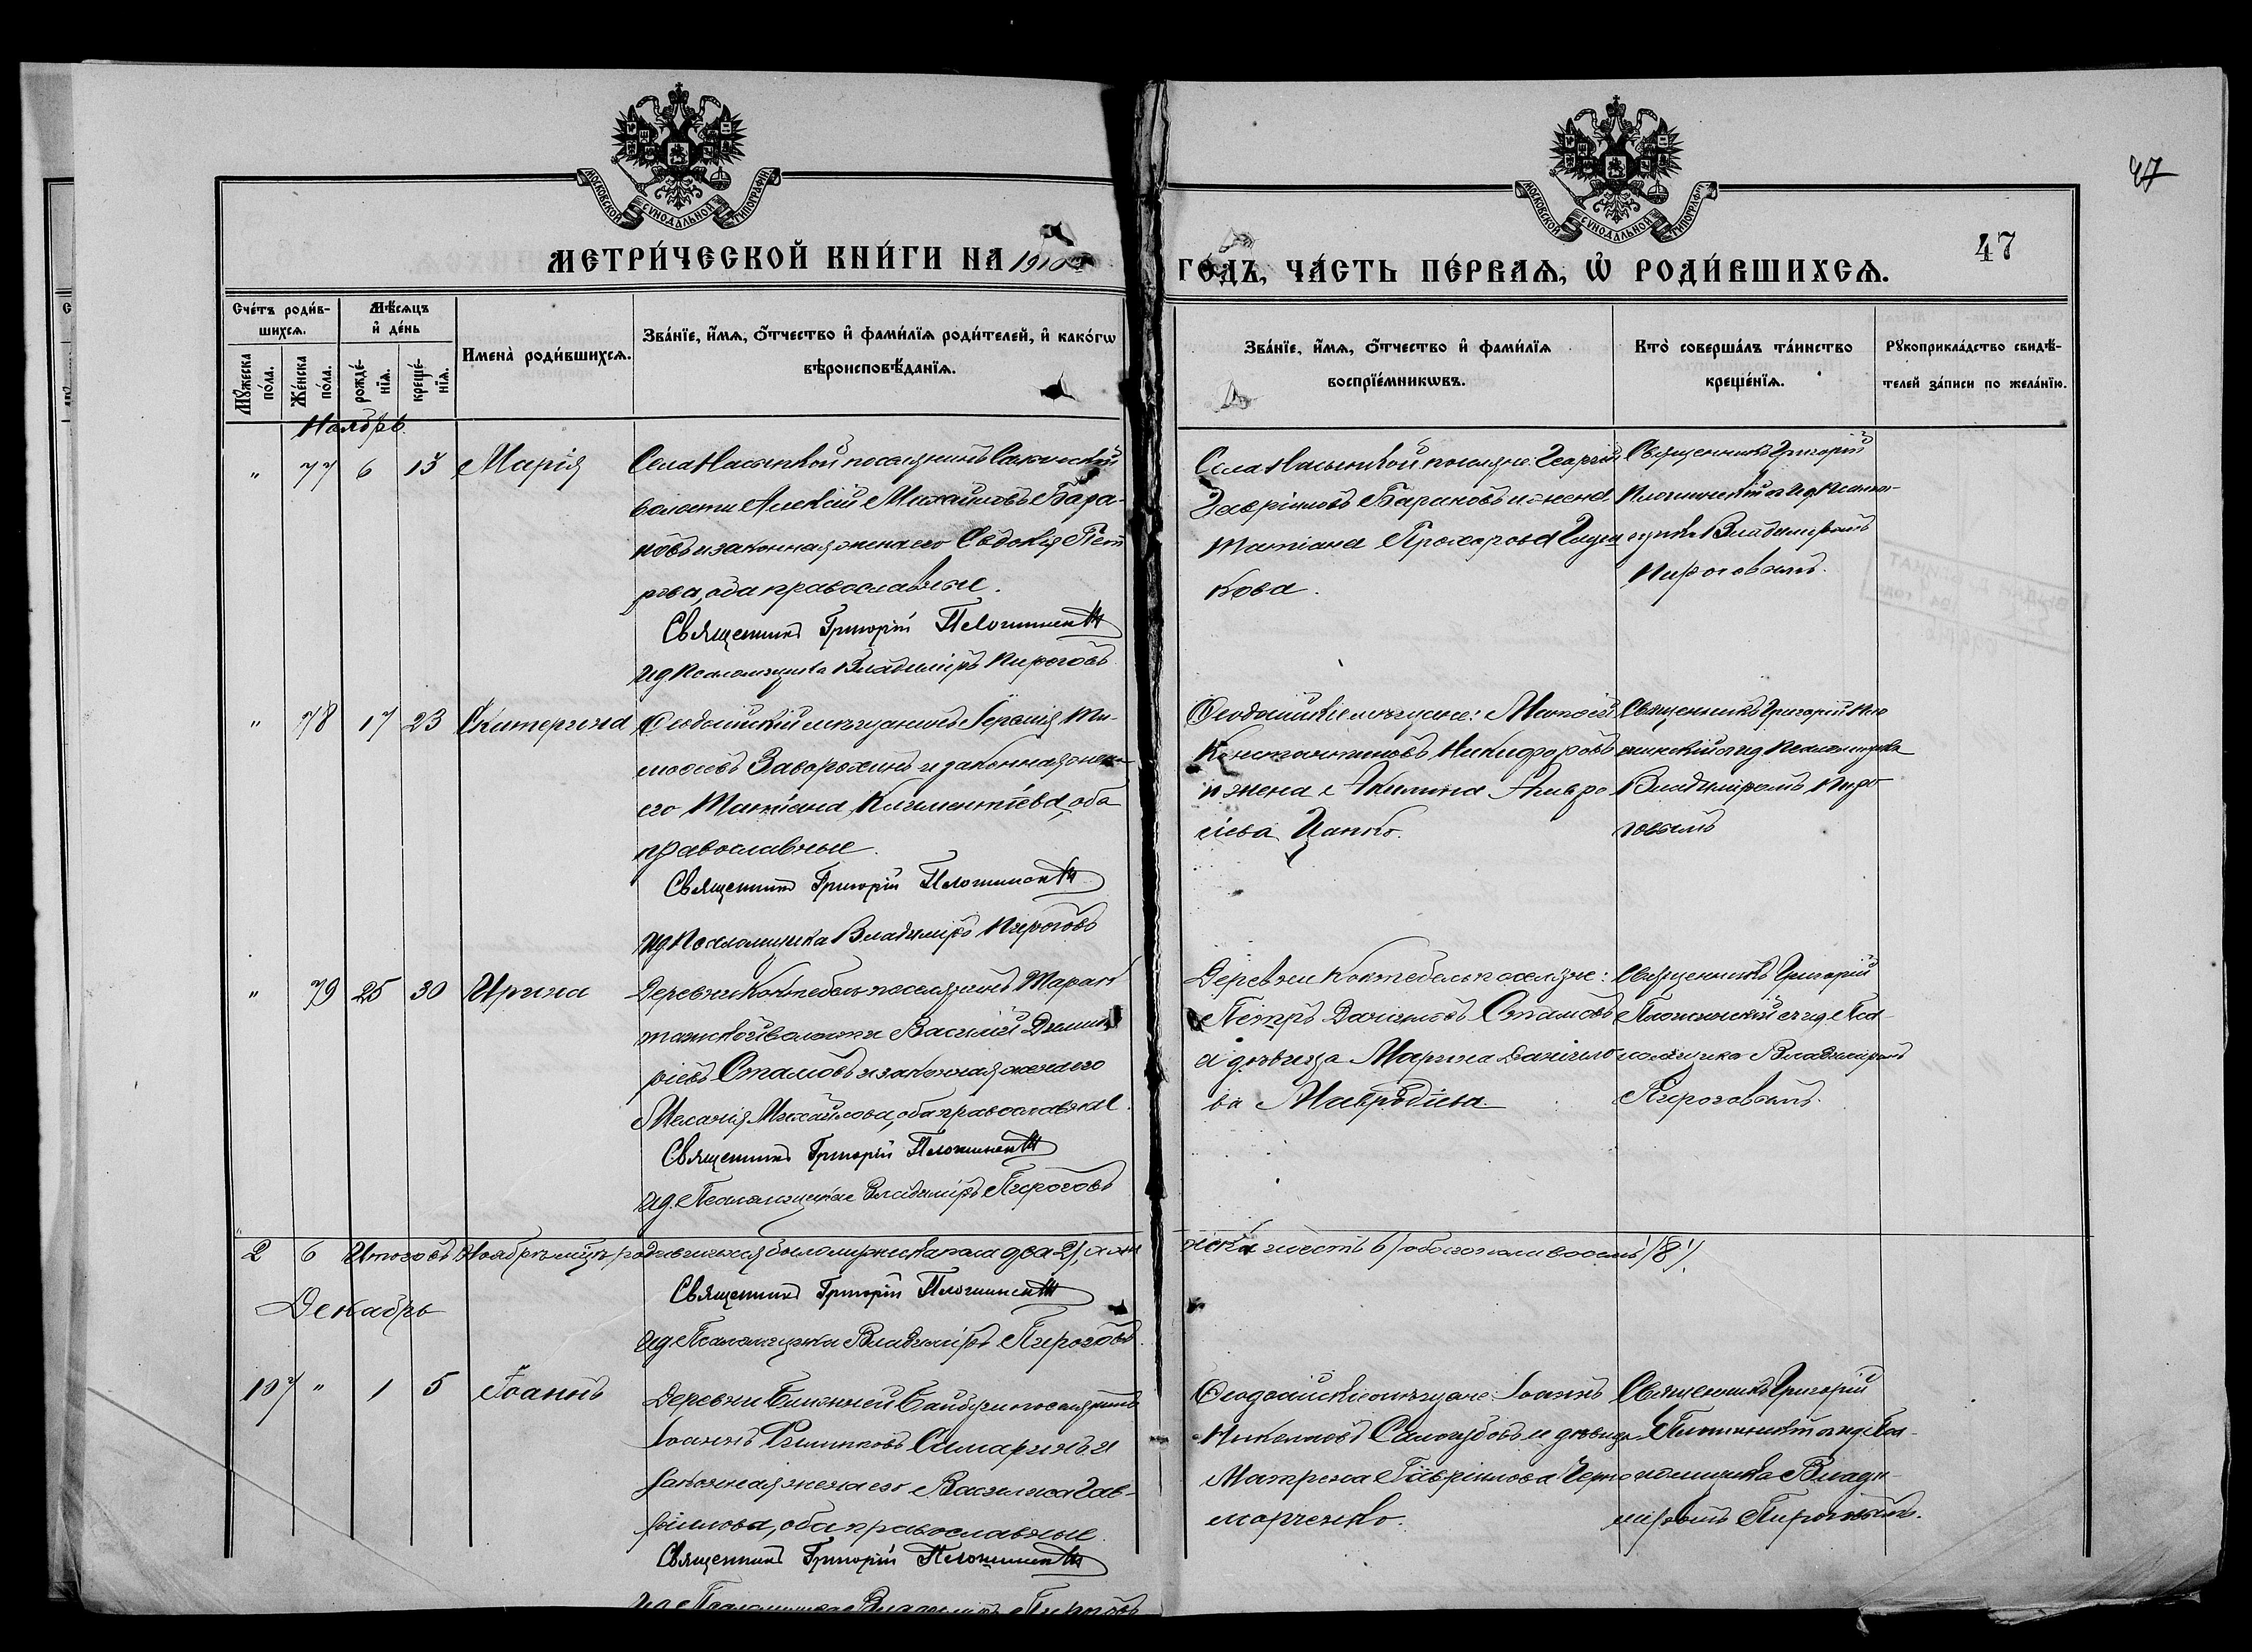 47
47
МОСКОВСКОЙ СѴНОДАЛЬНОЙ ТИПОГРАФІИ
МОСКОВСКОЙ СѴНОДАЛЬНОЙ ТИПОГРАФІИ
МЕТРИ́ЧЕСКОЙ КНИ́ГИ НА 1910
ГО́ДЪ, ЧА́СТЬ ПЕ́РВАѦ, Ѽ РОДИ́ВШИХСѦ.
Сче́тъ роди́в-
шихсѧ.
Мꙋ́жеска по́ла.
Же́нска по́ла.
Мѣ́сѧцъ
и҆ де́нь
рожде́-нїѧ.
креще́-нїѧ.
Имена̀ роди́вшихсѧ.
Зва́нїе, и҆́мѧ, ѻ҆́тчество и҆ фами́лїѧ роди́телей, и҆ како́гѡ
вѣроисповѣ́данїѧ.
Зва́нїе, и҆́мѧ, ѻ҆́тчество и҆ фами́лїѧ
воспрїе́мникѡвъ.
Кто̀ соверша́лъ та́инство
креще́нїѧ.
Рꙋкоприкла́дство свидѣ́-
телей за́писи по жела́нїю.
Ноябрь
" 77 6 13 Марія
Села Насыпкой поселянинъ Салинской
волости Алексій Михайловъ Бара-
новъ и законная жена его Евдокія Пет
рова, оба православные.
Священникъ Григорій
ид Псаломщика Владиміръ Пироговъ
Села Насыпкой поселяне: Георгій
Гавріиловъ Барановъ и жена
Татіана Прохорова
кова.
Священникъ Григорій
Владиміромъ
Пироговымъ.
" 78 17 23 Екатерина
Ѳеодосійскій мѣщанинъ Ти-
моѳеевъ Заворохинъ и законная жена
его Татіана Климентіева, оба
православные.
Священникъ Григорій
ид Псаломщика Владиміръ Пироговъ
Ѳеодосійскіе мѣщане: Матѳей
Константиновъ Никифоровъ
и жена Акилина
Цапко.
Священникъ Григорій
ид Псаломщика
Владиміромъ Пиро
говымъ
" 79 25 30 Ирина
Деревни Коктебель поселянинъ Таракъ
ташской волости Василій Димит
ріевъ Стамовъ и законная жена его
Меланія Михайлова, оба православные.
Священникъ Григорій
ид. Псаломщика Владиміръ Пироговъ
Деревни Коктебель поселяне:
Петръ Даниловъ Стамовъ
и дѣвица Марина Данило
ва Мавродіева.
Священникъ Григорій
ид Пса-
ломщика Владиміромъ
Пироговымъ.
2 6 Итого въ Ноябрѣ мцѣ родившихся было мужеска пола два 2, а жен
ска шесть 6/ обоего пола восемь /8/.
Священникъ Григорій
ид Псаломщика Владиміръ Пироговъ
Декабрь
107 " 1 5 Іоаннъ
Деревни Ближней Байбуги поселянинъ
Іоаннъ Филипповъ и
законная жена его Василиса Гав-
ріилова, оба православные.
Священникъ Григорій
ид Псаломщика Владиміръ Пироговъ
Ѳеодосійскіе мѣщане: Іоаннъ
Николаевъ Самогубовъ и дѣвица
Матрена Гавріилова Черно
марченко.
Священникъ Григорій
ид Пса-
ломщика Влади-
міромъ Пироговымъ.